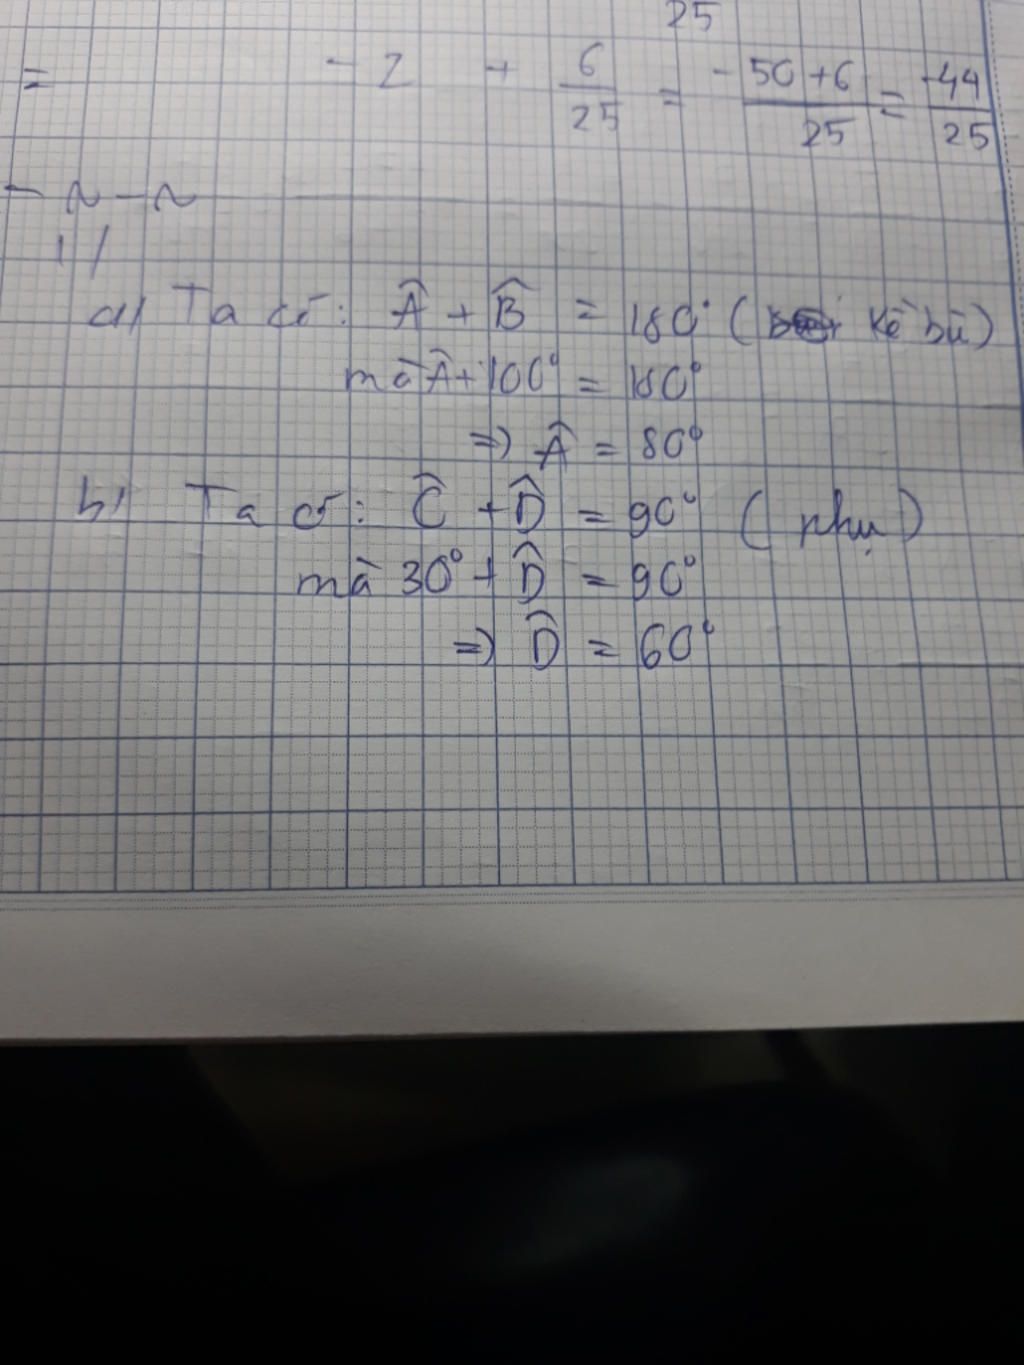 25
= - 2 + 6/25 = - 50 + 6/25 = -44/25
- ~ - ~
1/
a/ Ta có: Â + B̂ = 180° ( kề bù)
mà Â + 100° = 180°
=> Â = 80°
b/ Ta có: Ĉ + D̂ = 90° ( phụ )
mà 30° + D̂ = 90°
=> D̂ = 60°